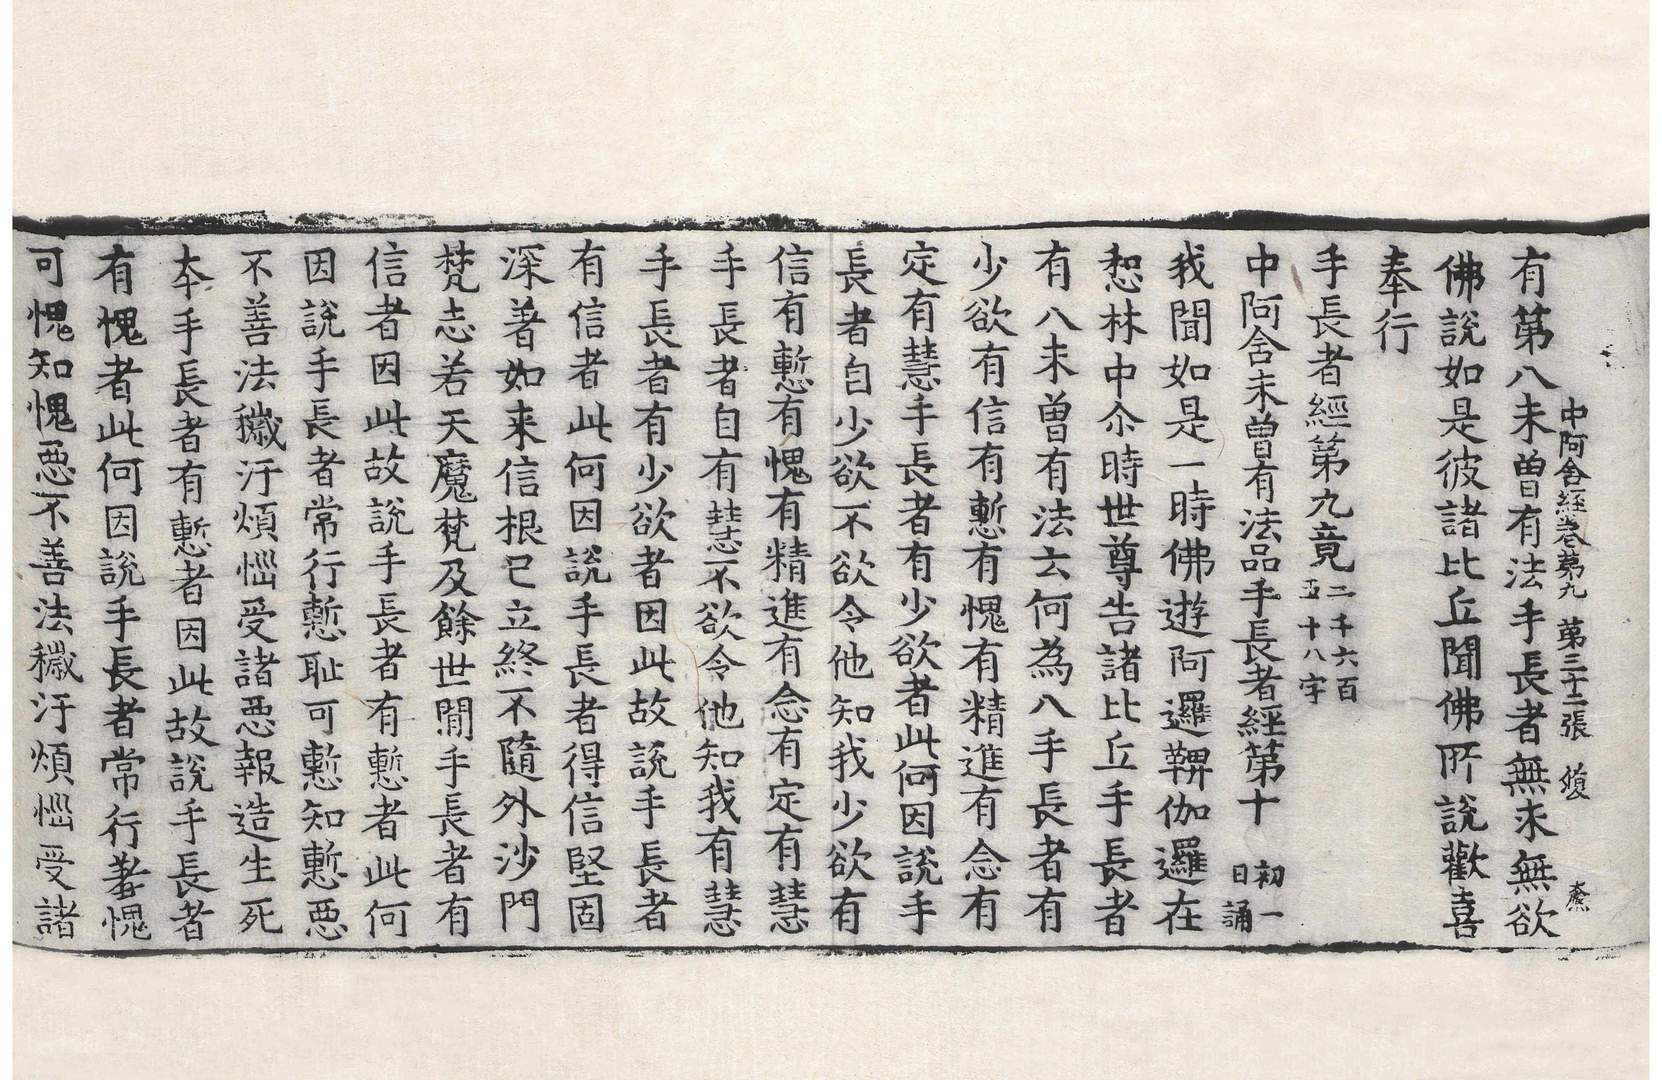 中阿含經卷第九 第三十二張
有第八未曽有法手長者無求無欲
佛說如是彼諸比丘聞佛所說歡喜
奉行
手長者經第九竟 二千六百五十八字
中阿含未曽有法品手長者經第十 初一日誦
我聞如是一時佛遊阿邏鞞伽邏在
惒林中尒時世尊告諸比丘手長者
有八未曽有法云何為八手長者有
少欲有信有慙有愧有精進有念有
定有慧手長者有少欲者此何因說手
長者自少欲不欲令他知我少欲有
信有慙有愧有精進有念有定有慧
手長者自有慧不欲令他知我有慧
手長者有少欲者因此故說手長者
有信者此何因說手長者得信堅固
深著如来信根已立終不隨外沙門
梵志若天魔梵及餘世間手長者有
信者因此故說手長者有慙者此何
因說手長者常行慙耻可慙知慙惡
不善法穢汙煩惱受諸惡報造生死
本手長者有慙者因此故說手長者
有愧者此何因說手長者常行羞愧
可愧知愧惡不善法穢汙煩惱受諸